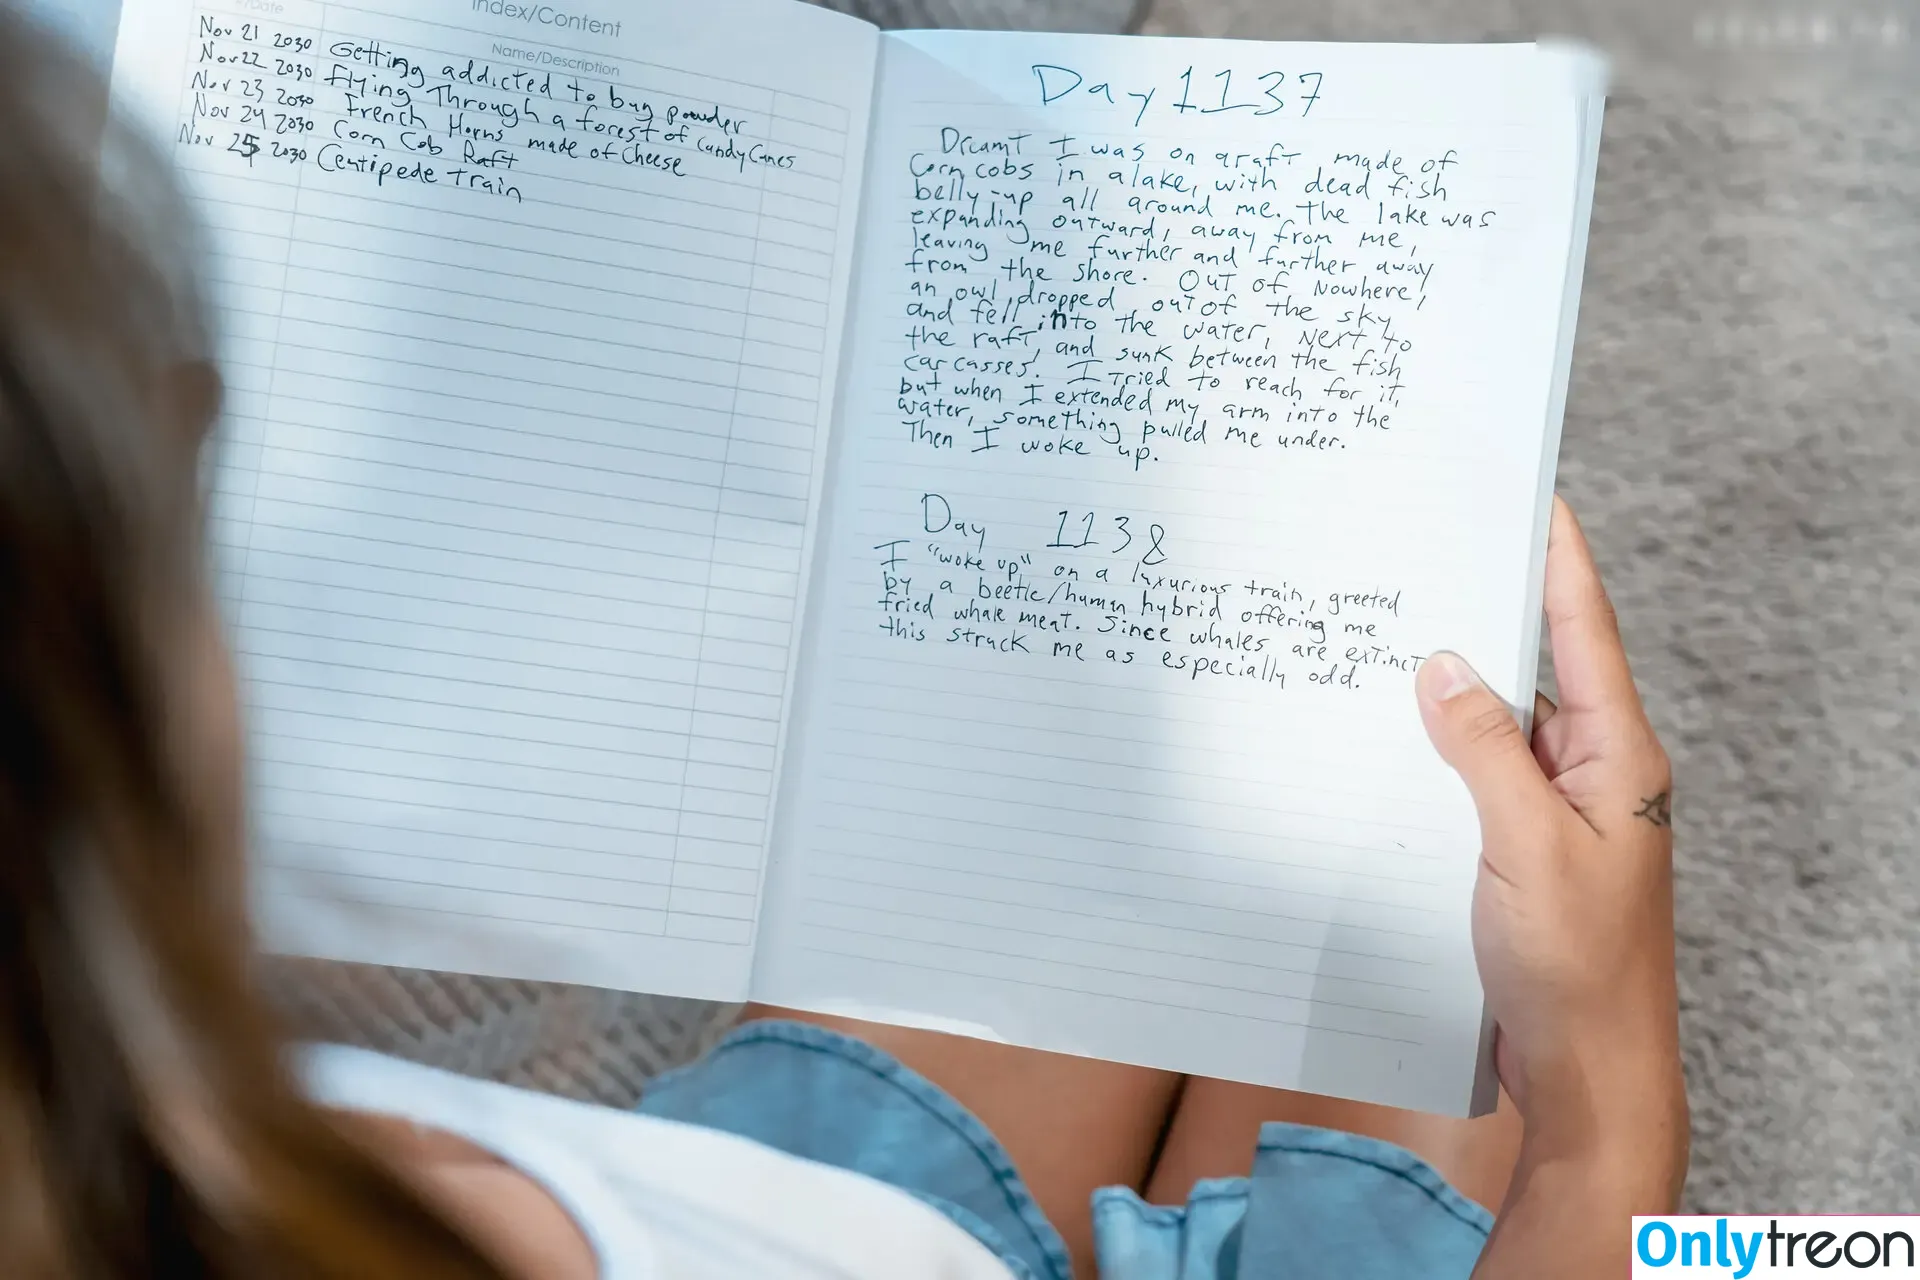 Index/Content
/Date
Name/Description
Nov 21 2030 Getting addicted to bug powder
Nov 22 2030 Flying Through a forest of Candy Canes
Nov 23 2030 French Horns made of Cheese
Nov 24 2030 Corn Cob Raft
Nov 25 2030 Centipede train
Day 1137
Dreamt I was on a raft made of
Corn cobs in a lake, with dead fish
belly-up all around me. The lake was
expanding outward, away from me,
leaving me further and further away
from the shore. Out of nowhere,
an owl dropped out of the sky
and fell into the water, next to
the raft, and sunk between the fish
carcasses. I tried to reach for it,
but when I extended my arm into the
water, something pulled me under.
Then I woke up.
Day 1138
I "woke up" on a luxurious train, greeted
by a beetle/human hybrid offering me
fried whale meat. Since whales are extinct
this struck me as especially odd.
Onlytreon